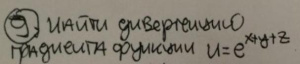 9. НАЙТИ дивергенцию
градиента функции u=e^{x+y+z}